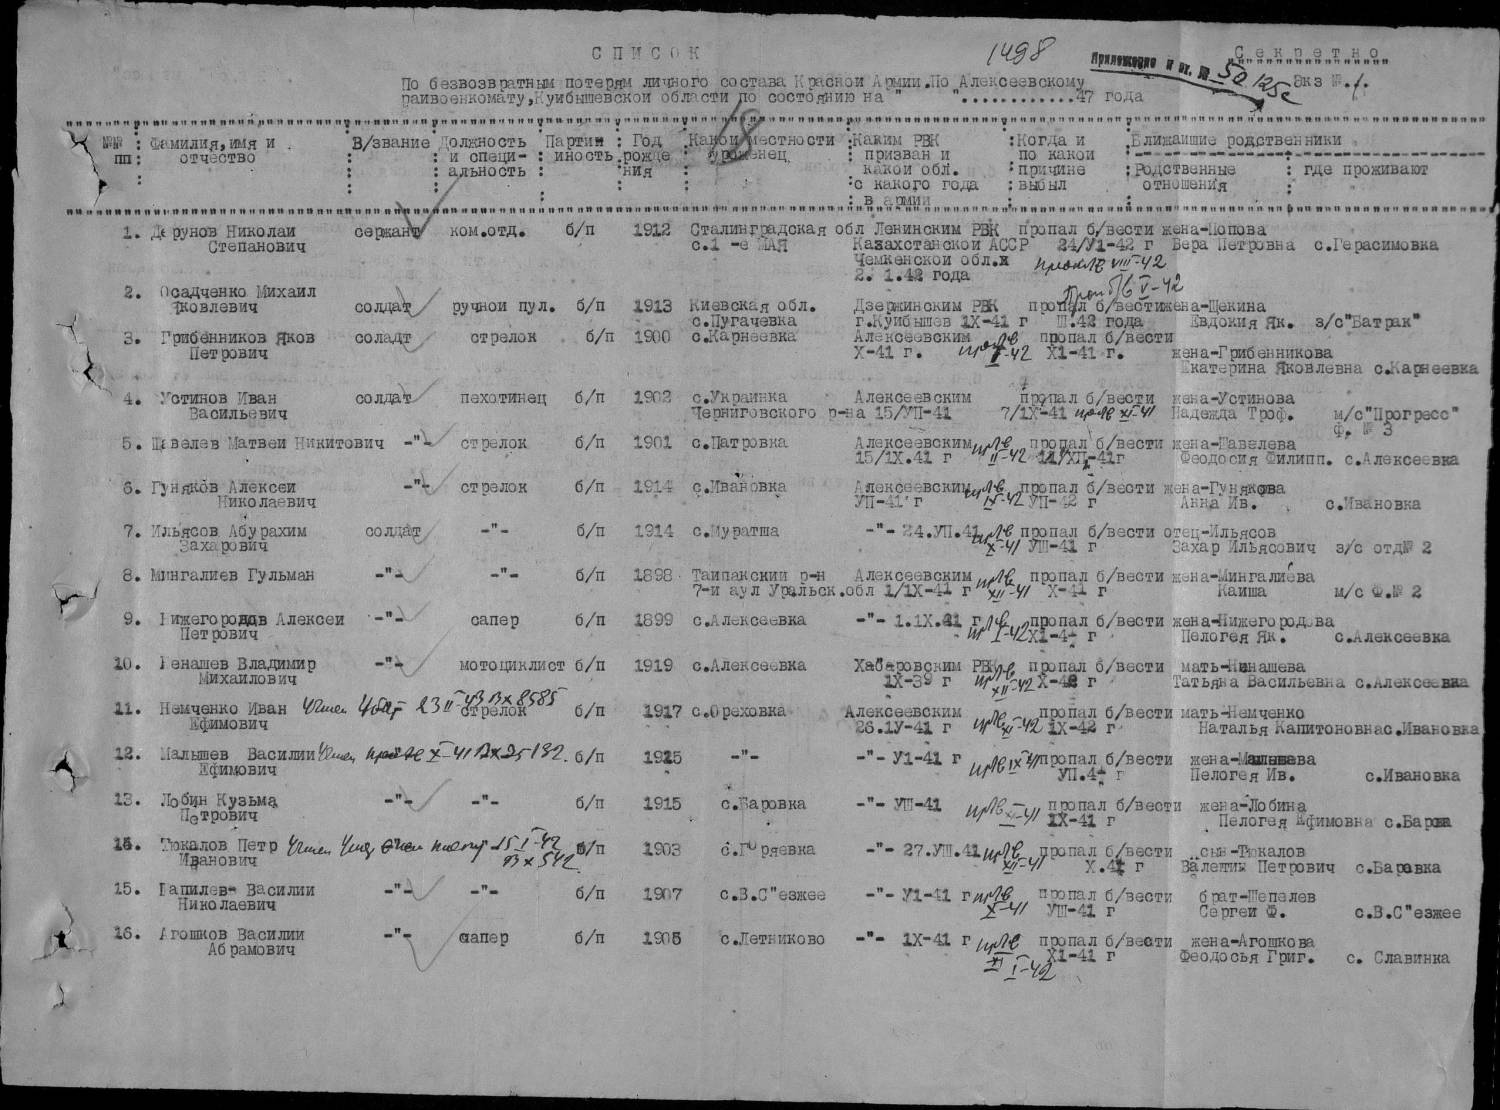 СПИСОК
1498
Приложение к вх. № 50125с
Секретно
Экз №.1.
По безвозвратным потерям личного состава Красной Армии.По Алексеевскому
райвоенкомату,Куйбышевской области по состоянию на " "............47 года
18
№№ пп : Фамилия,имя и отчество : В/звание : Должность и специальность : Партийность : Год рождения : Какой местности уроженец : Каким РВК призван и какой обл. с какого года в армии : Когда и по какой причине выбыл : Ближайшие родственники
Родственные отношения : где проживают
1. Дерунов Николай сержант ком.отд. б/п 1912 Сталинградская обл Ленинским РВК пропал б/вести жена-Попова
Степанович с.1 -е МАЯ Казахстанской АССР 24/У1-42 г Вера Петровна с.Герасимовка
Чемкенской обл.
2. 1.42 года
VIII-42
V-42
2. Осадченко Михаил
Яковлевич солдат ручной пул. б/п 1913 Киевская обл. Дзержинским РВК пропал б/вести жена-Щекина
с.Пугачевка г.Куйбышев 1Х-41 г Ш.42 года Евдокия Як. з/с"Батрак"
3. Грибенников Яков соладт стрелок б/п 1900 с.Карнеевка Алексеевским пропал б/вести
Петрович Х-41 г. Х1-41 г. жена-Грибенникова
Екатерина Яковлевна с.Карнеевка
4. Устинов Иван солдат пехотинец б/п 1902 с.Украинка Алексеевским пропал б/вести жена-Устинова
Васильевич Черниговского р-на 15/УП-41 7/1Х-41 XI-41 Надежда Троф. м/с"Прогресс"
ф. № 3
5. Шавелев Матвей Никитович -"- стрелок б/п 1901 с.Патровка Алексеевским пропал б/вести жена-Шавелева
15/1Х.41 г II-42 /ХП-41г Феодосия Филипп. с.Алексеевка
6. Гуняков Алексей -"- стрелок б/п 1914 с.Ивановка Алексеевским пропал б/вести жена-Гунякова
Николаевич УП-41 г УП-42 г Анна Ив. с.Ивановка
7. Ильясов Абурахим солдат -"- б/п 1914 с.Муратша -"- 24.УП.41 пропал б/вести отец-Ильясов
Захарович X-41 УШ-41 г Захар Ильясович з/с отд№ 2
8. Мингалиев Гульман -"- -"- б/п 1898 Тайпакский р-н Алексеевским пропал б/вести жена-Мингалиева
7-й аул Уральск.обл 1/1Х-41 г XII-41 Х-41 г Каиша м/с Ф.№ 2
9. Нижегородов Алексей -"- сапер б/п 1899 с.Алексеевка -"- 1.1Х.41 г пропал б/вести жена-Нижегородова
Петрович I-42 Х1-4 г Пелогея Як. с.Алексеевка
10. Ненашев Владимир -"- мотоциклист б/п 1919 с.Алексеевка Хабаровским РВК пропал б/вести мать-Ненашева
Михайлович 1Х-39 г XII-42 Х-42 г Татьяна Васильевна с.Алексеевка
11. Немченко Иван 23 II-43 Вх 8585 стрелок б/п 1917 с.Ореховка Алексеевским пропал б/вести мать-Немченко
Ефимович 26.1У-41 г XI-42 1Х-42 г Наталья Капитоновна с.Ивановка
12. Малышев Василий X-41 Вх 25132. б/п 1925 -"- -"- У1-41 г IX-41 пропал б/вести жена-Малышева
Ефимович УП.4 г Пелогея Ив. с.Ивановка
13. Лобин Кузьма -"- -"- б/п 1915 с.Баровка -"- УШ-41 пропал б/вести жена-Лобина
Петрович XI-41 1Х-41 г Пелогея Ефимовна с.Баровка
14. Тюкалов Петр 15 I-42 б/п 1903 с.Горяевка -"- 27.УШ.41 пропал б/вести сын-Тюкалов
Иванович Вх 542 XII-41 Х.41 г Валентин Петрович с.Баровка
15. Шапилев Василий -"- -"- б/п 1907 с.В.С"езжее -"- У1-41 г пропал б/вести брат-Шепелев
Николаевич X-41 УШ-41 г Сергей Ф. с.В.С"езжее
16. Агошков Василий -"- сапер б/п 1905 с.Летниково -"- 1Х-41 г пропал б/вести жена-Агошкова
Абрамович Х1-41 г Феодосья Григ. с. Славинка
I-42